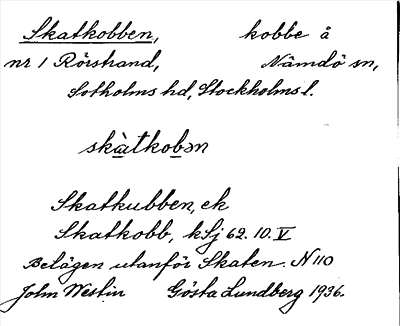 Skatkobben, kobbe å
nr 1 Rörstrand, Nämdö sn,
Sotholms hd, Stockholms l.
skàtkobən
Skatkubben, ek
Skatkobb, kSj 62.10.V
Belägen utanför Skaten. N 110
John Westin Gösta Lundberg 1936.